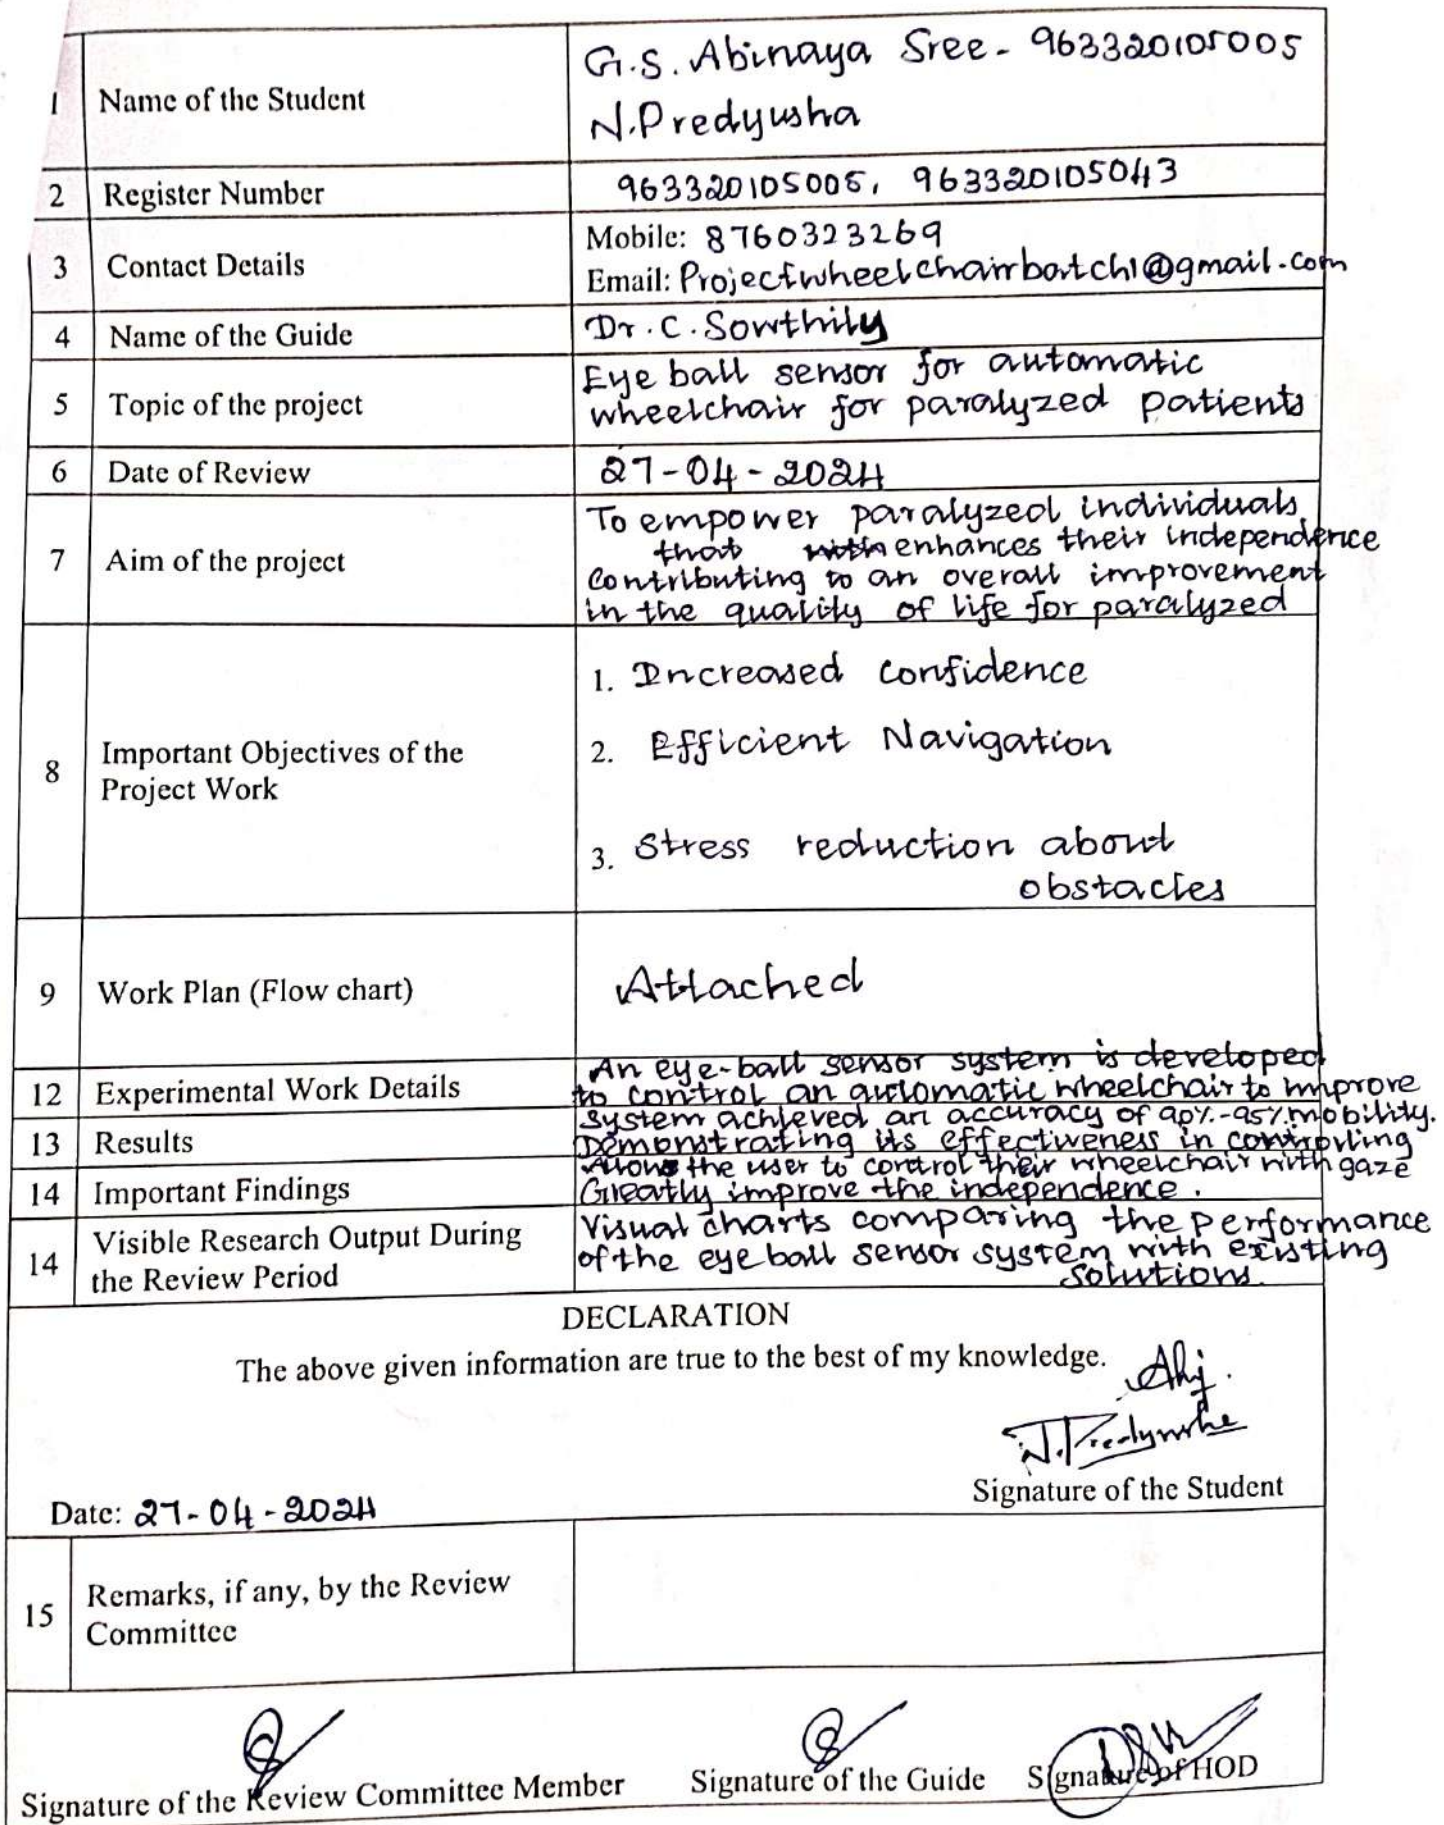 1 Name of the Student G.S. Abinaya Sree - 963320105005
N.Predyusha
2 Register Number 963320105005, 963320105043
3 Contact Details Mobile: 8760323269
Email: Projectwheelchairbatch1@gmail.com
4 Name of the Guide Dr. C. Sowthily
5 Topic of the project Eye ball sensor for automatic
wheelchair for paralyzed patients
6 Date of Review 27-04-2024
7 Aim of the project To empower paralyzed individuals
that enhances their independence
Contributing to an overall improvement
in the quality of life for paralyzed
8 Important Objectives of the
Project Work
1. Increased confidence
2. Efficient Navigation
3. Stress reduction about
obstacles
9 Work Plan (Flow chart) Attached
12 Experimental Work Details An eye-ball sensor system is developed
to control an automatic wheelchair to improve
mobility.
13 Results System achieved an accuracy of 90%-95%
Demonstrating its effectiveness in controlling
14 Important Findings Allows the user to control their wheelchair with gaze
Greatly improve the independence.
14 Visible Research Output During
the Review Period
Visual charts comparing the performance
of the eye ball sensor system with existing
solutions.
DECLARATION
The above given information are true to the best of my knowledge.
N. Predyusha
Signature of the Student
Date: 27-04-2024
15 Remarks, if any, by the Review
Committee
Signature of the Review Committee Member Signature of the Guide Signature of HOD